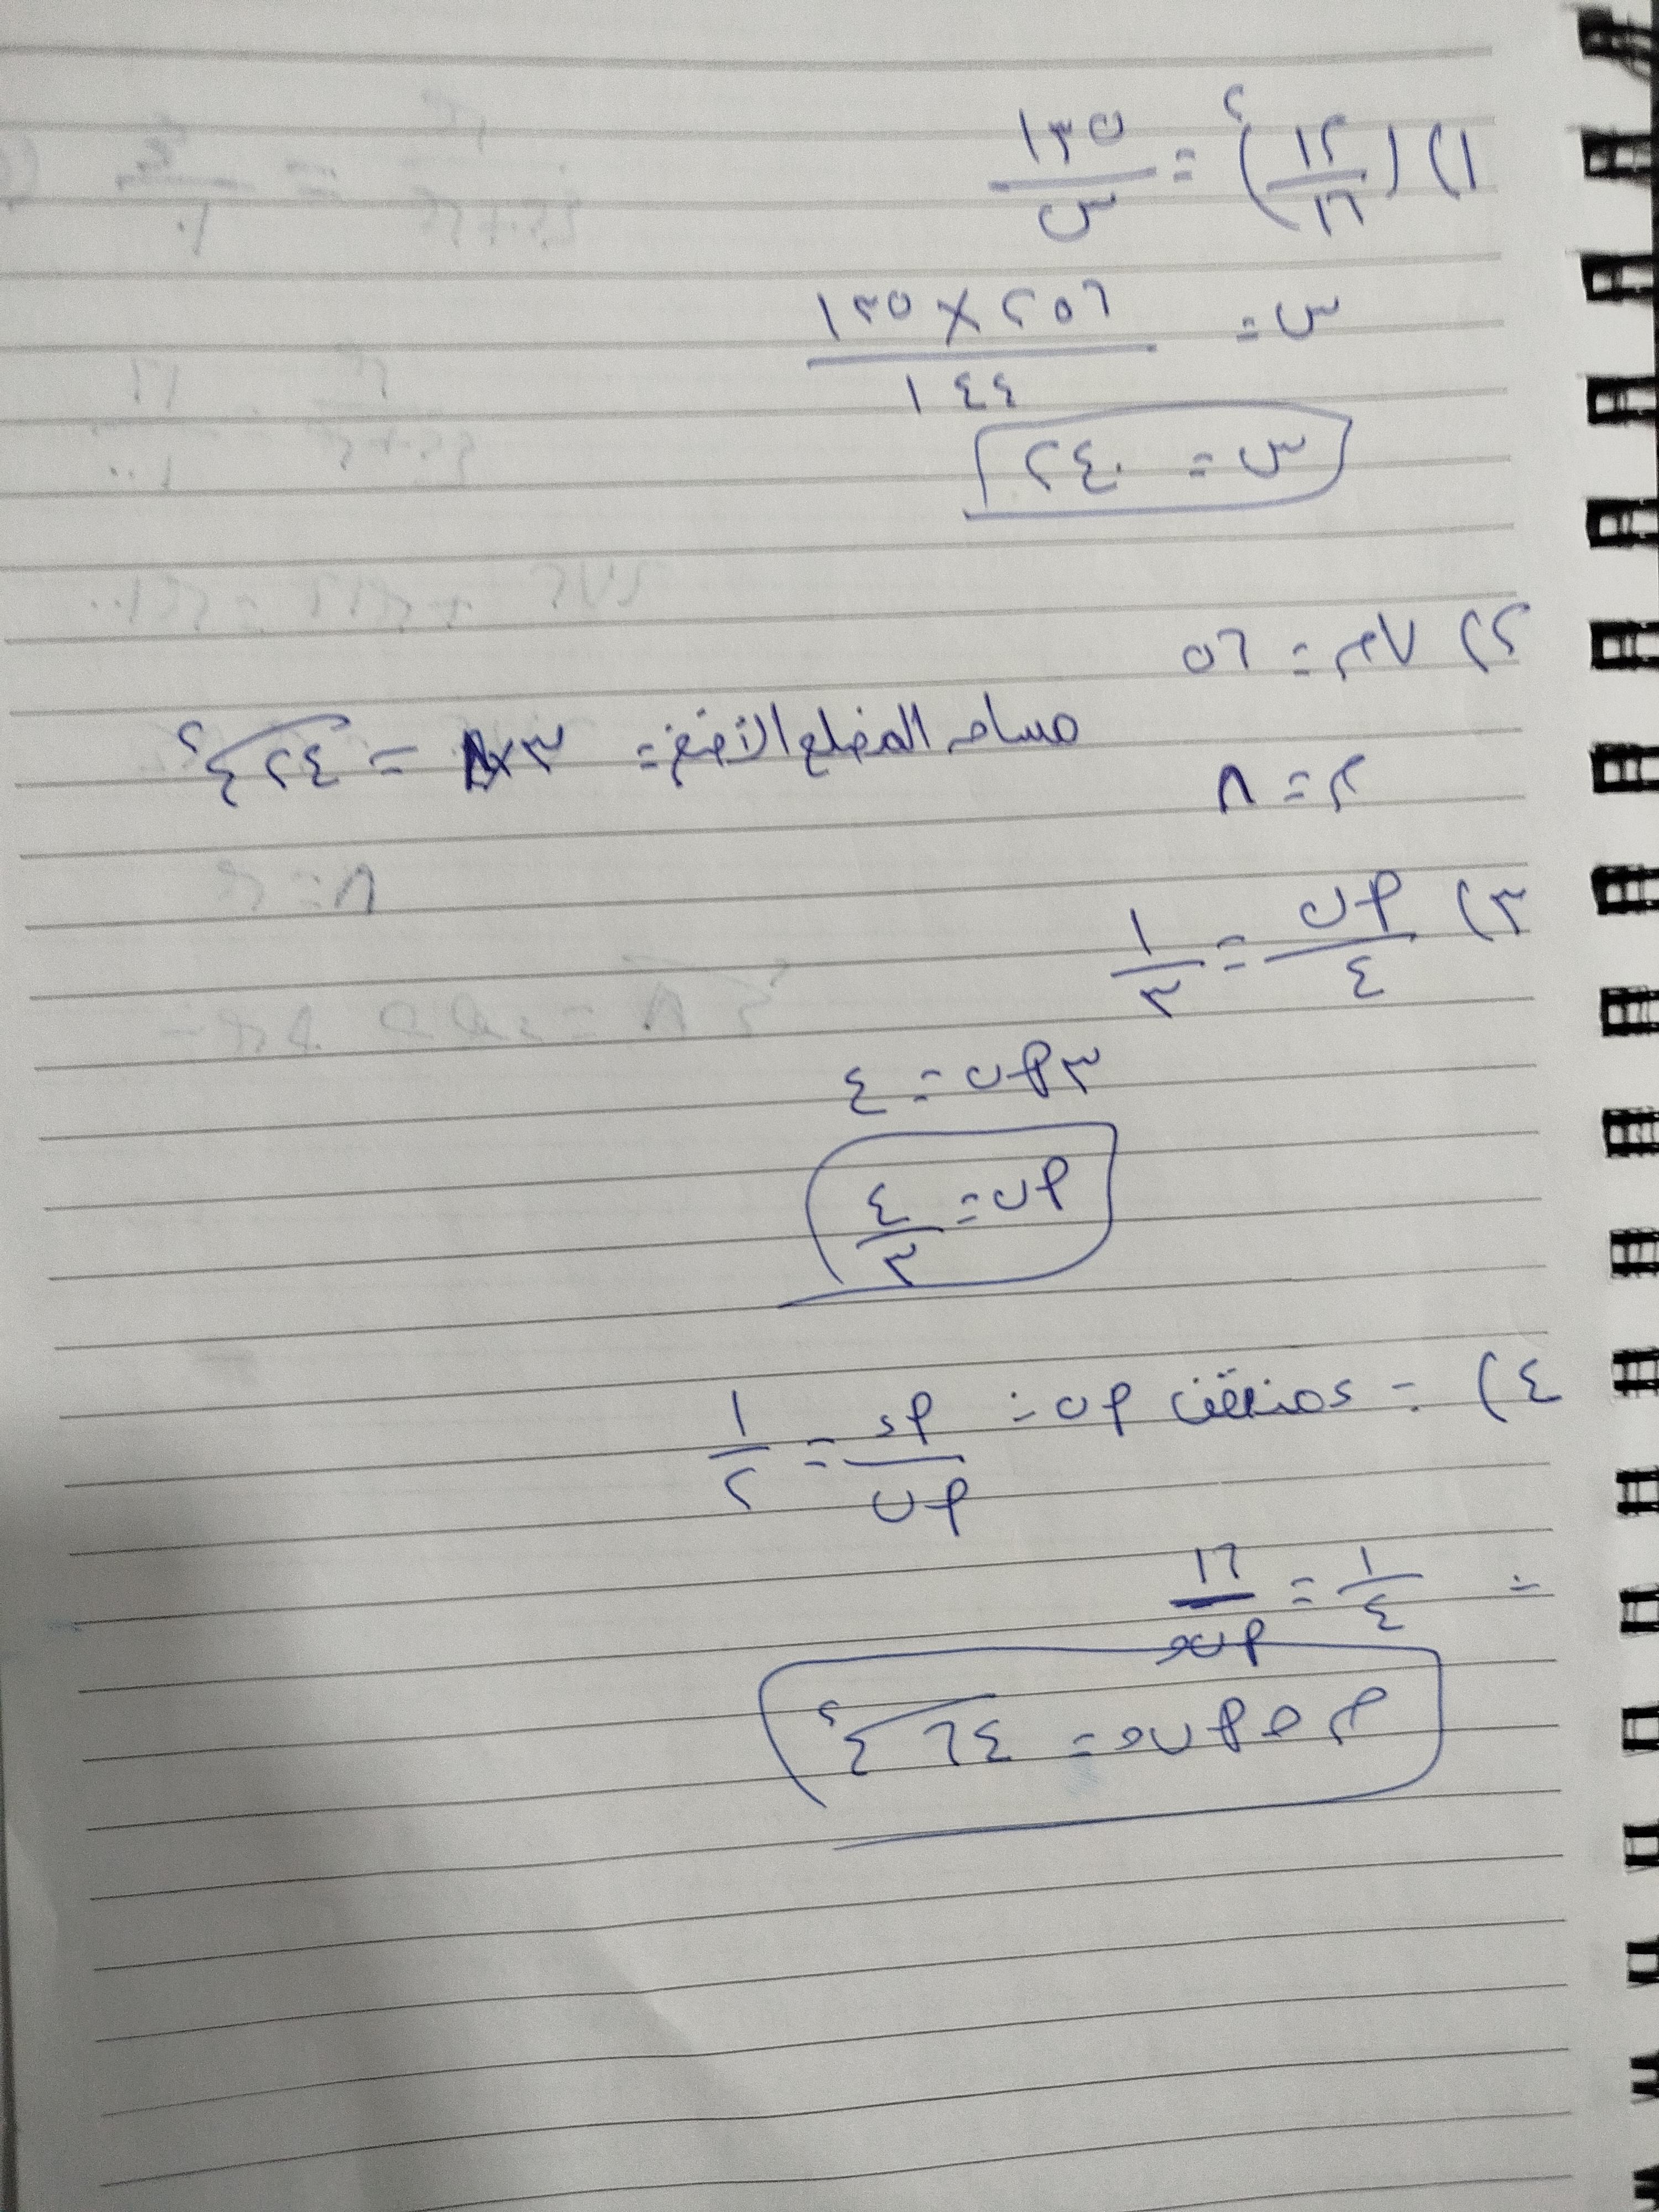 ١) (١٢/١٦)^٢ = ١٣٥/س
س = ٢٥٦ × ١٣٥ / ١٤٤
س = ٢٤٠
٢) ٧م = ٥٦
م = ٨
مساحه المضلع الأصغر = ٣×٨ = ٢٤ سم٢
٣) أب/٤ = ١/٣
٣أب = ٤
أب = ٤/٣
٤) ∵ د منتصف أب ∴ أد/أب = ١/٢
∴ ١/٤ = ١٦/أب‍ج‍
م ∆ أب‍ج‍ = ٦٤ سم٢